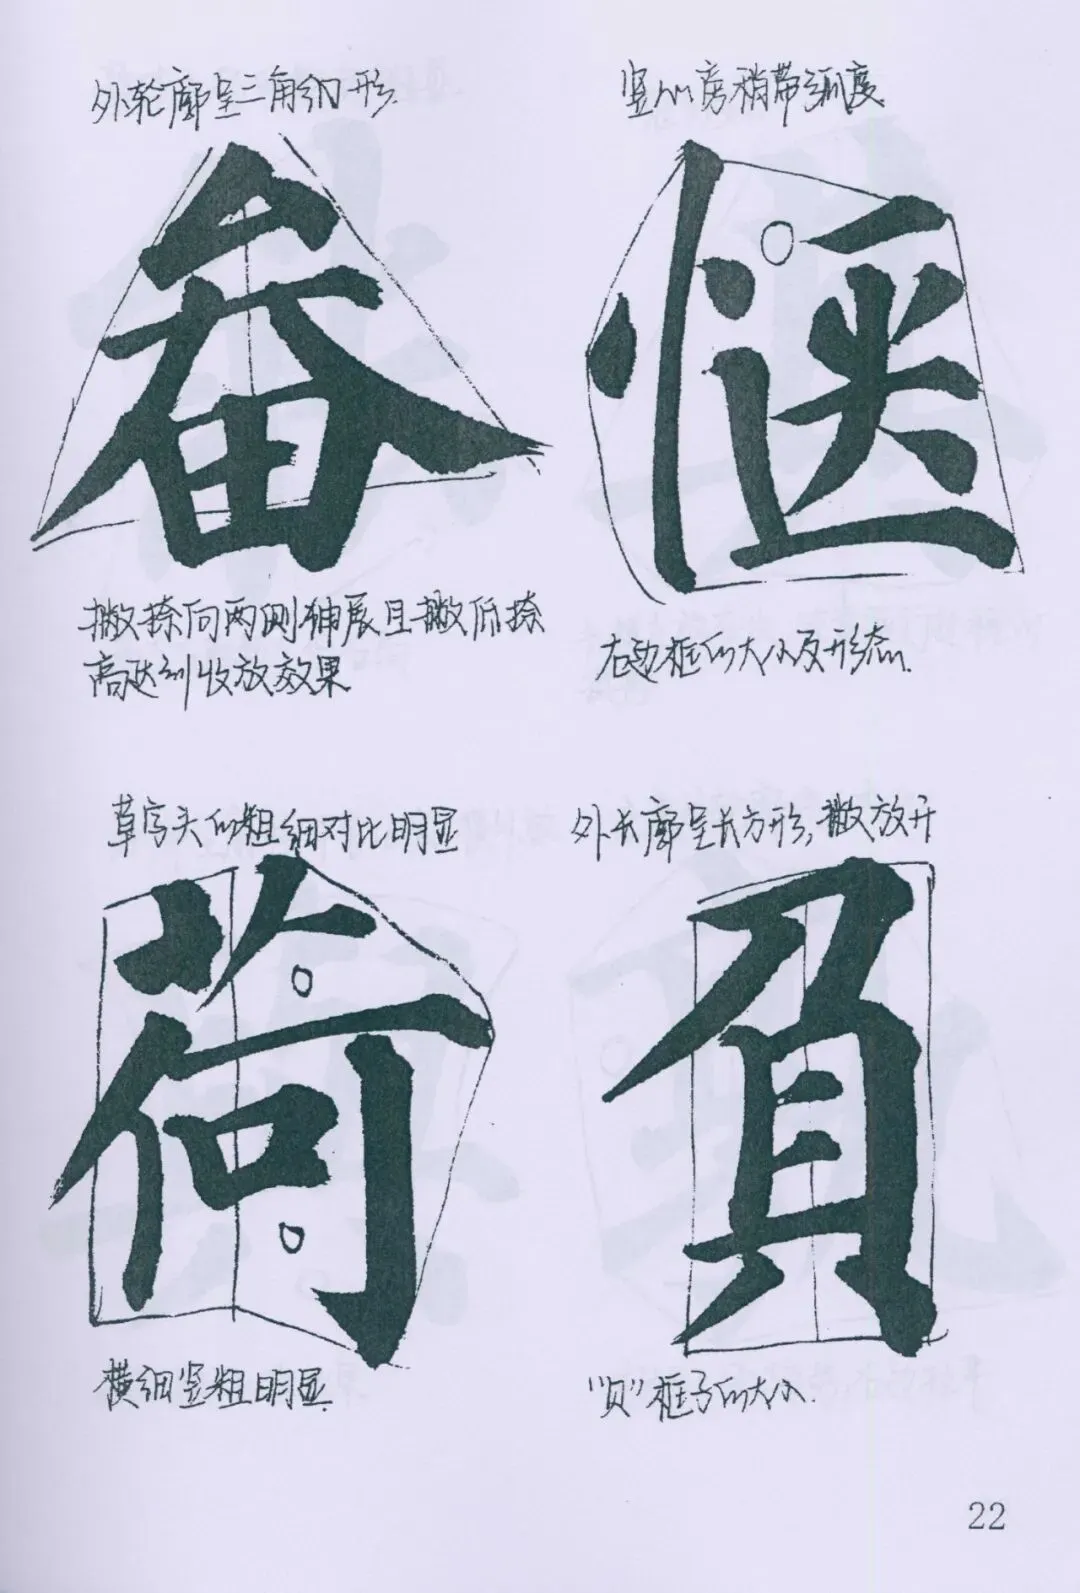 外轮廓呈三角的形.
畚
撇捺向两侧伸展且撇低捺
高达到收放效果
竖心旁稍带弧度
惬
右边框的大小及形态.
草字头的粗细对比明显
荷
横细竖粗明显.
外长廓呈长方形,撇放开
負
"贝"框子的大小.
22